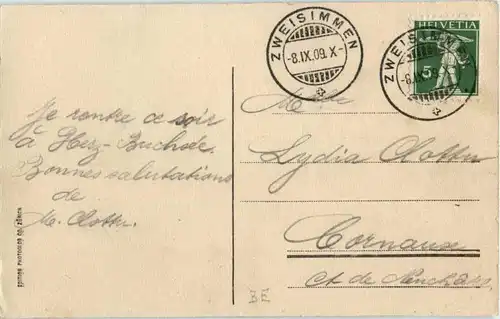 ZWEISIMMEN
-8.IX.09. X-
ZWEISIMMEN
-8.IX.09
HELVETIA
5
Je rentre ce soir
à Herz-Buchsée.
Bonnes salutations
de
M. Clottu.
Lydia Clottu
Cornaux
Ct de Neuchâtel
EDITION PHOTOGLOB CO. ZÜRICH
BE